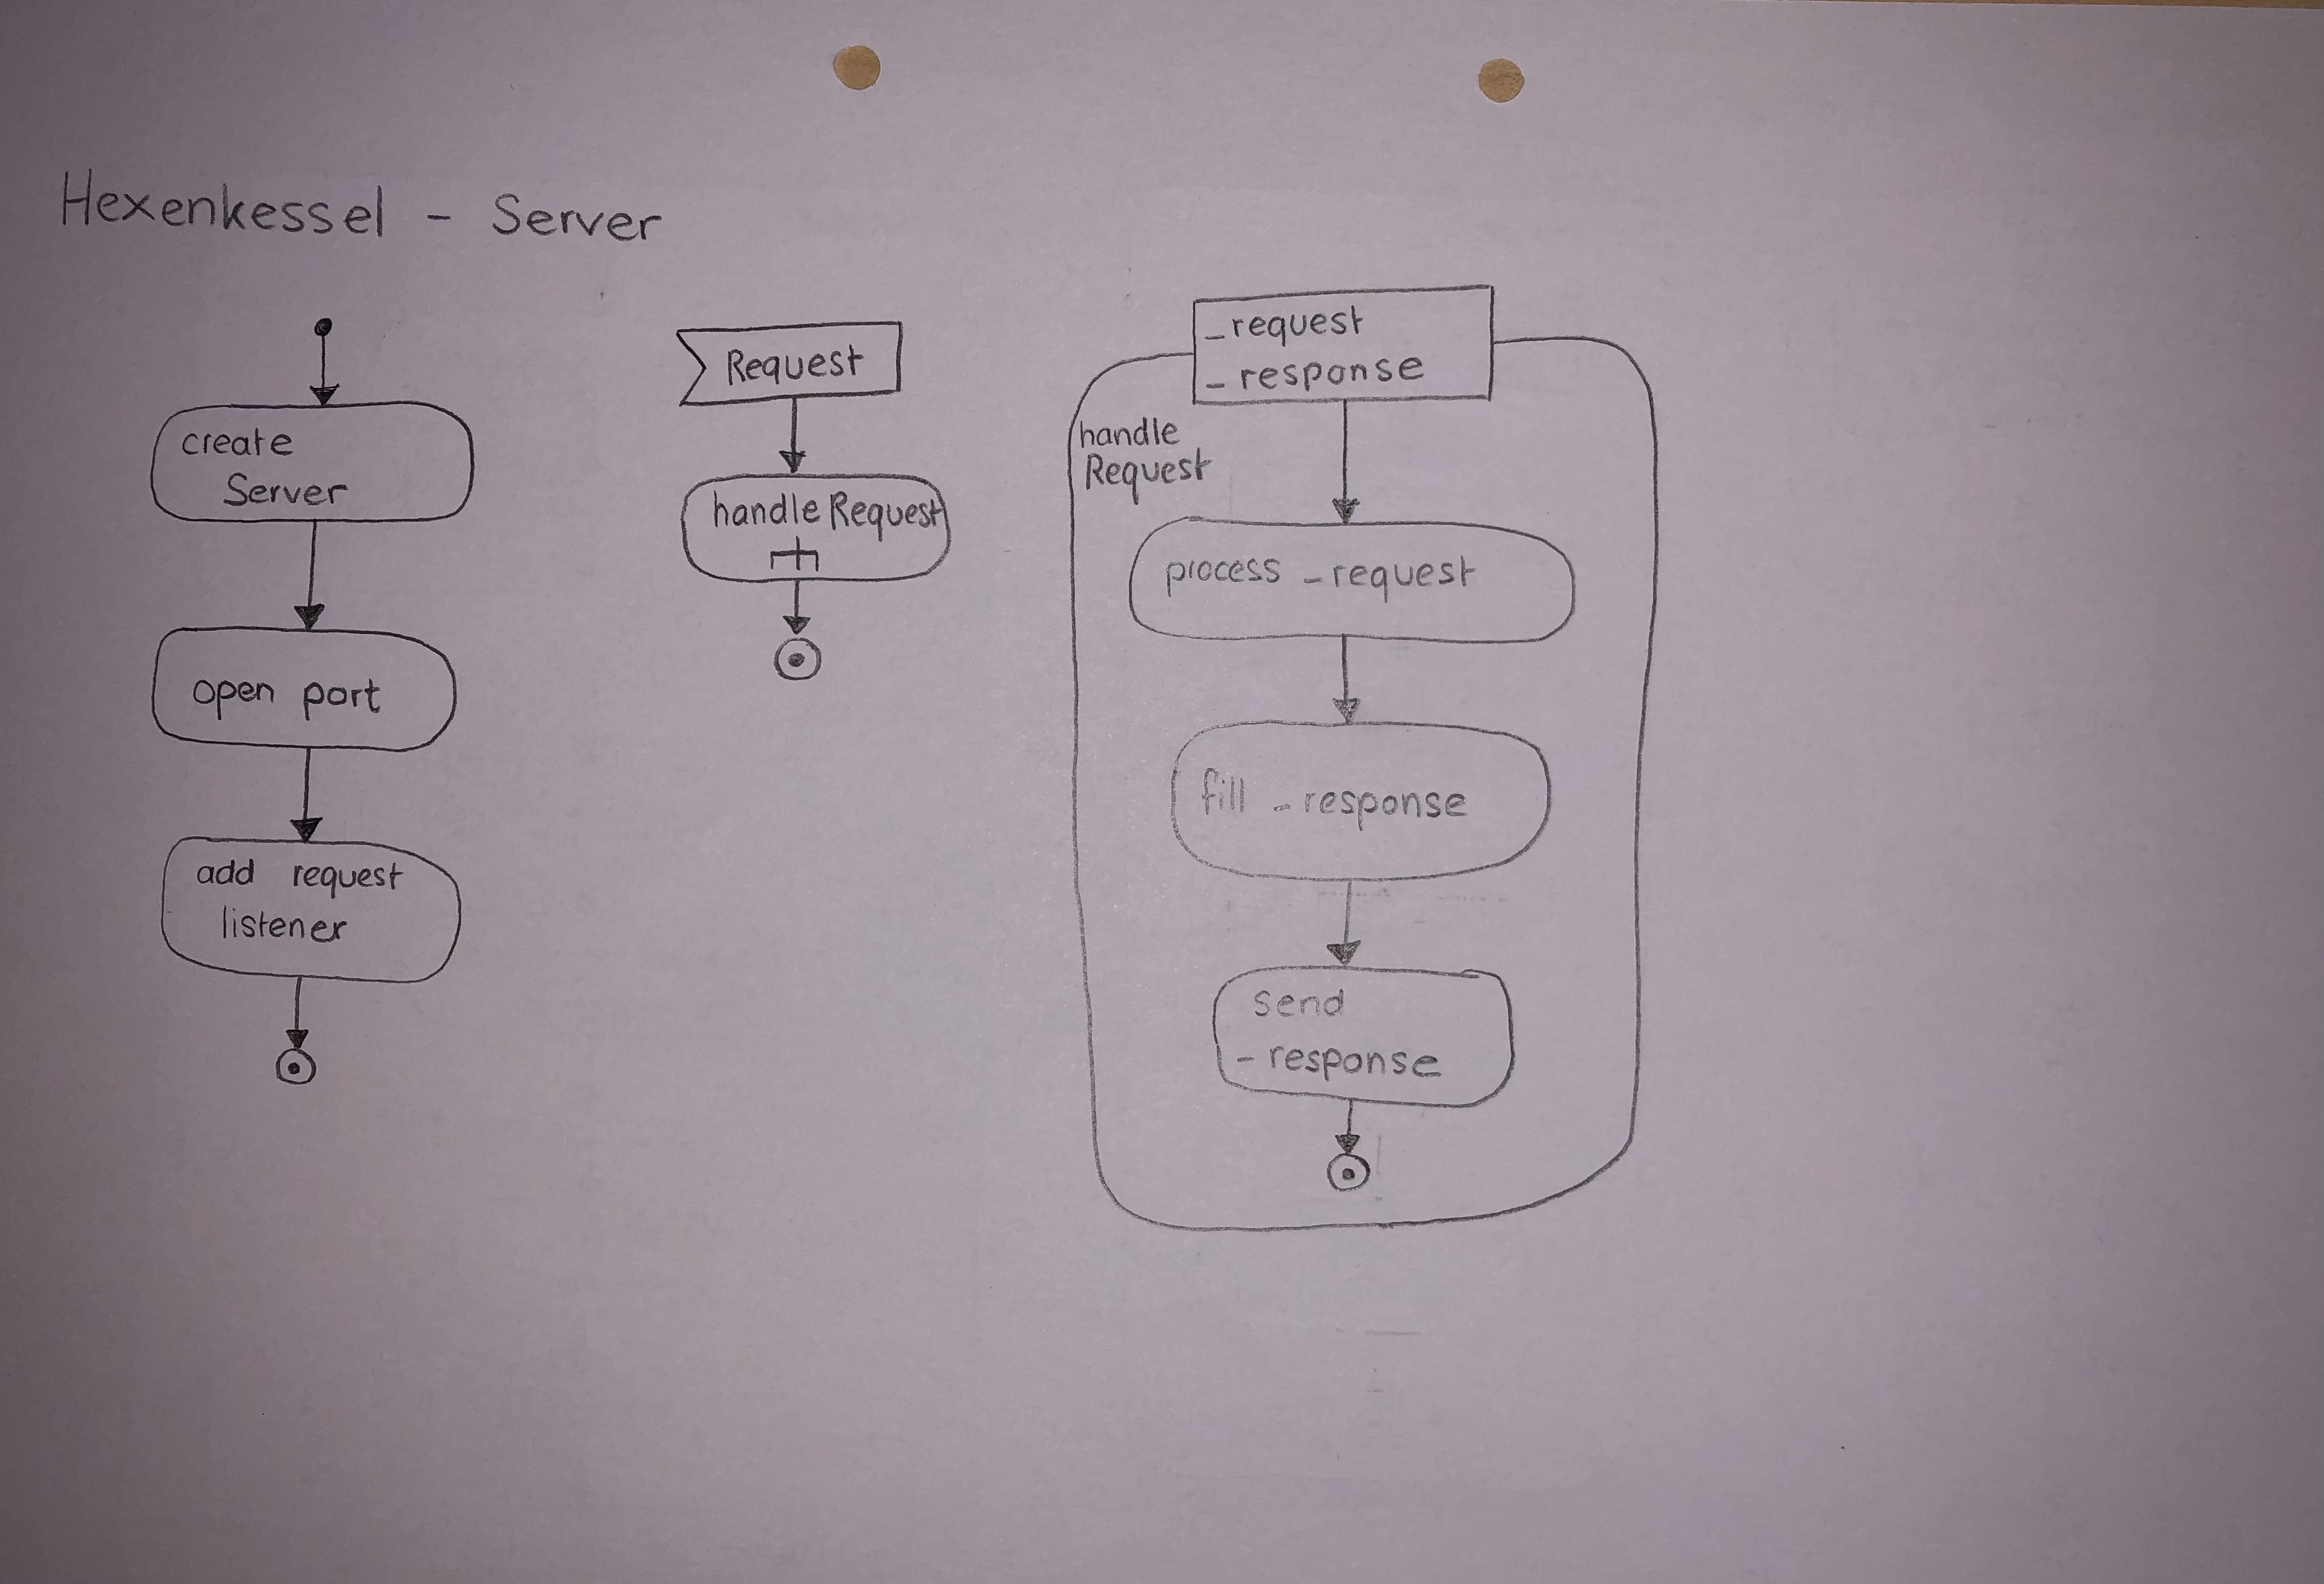 Hexenkessel - Server
create
Server
open port
add request
listener
Request
handle Request
_request
_response
handle
Request
process _request
fill _response
send
_response